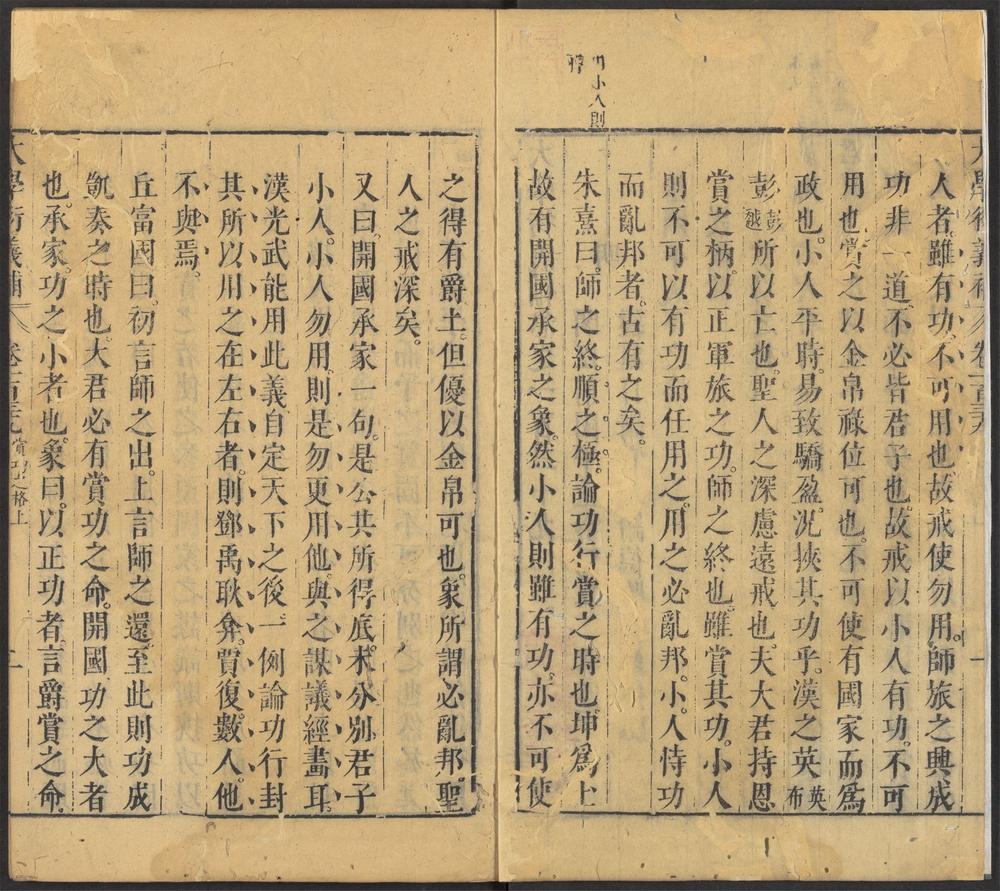 人者雖有功不可用也故戒使勿用師旅之興成
功非一道不必皆君子也故戒以小人有功不可
用也賞之以金帛祿位可也不可使有國家而為
政也小人平時易致驕盈況挾其功乎漢之英英布
彭彭越所以亡也聖人之深慮遠戒也夫大君持恩
賞之柄以正軍旅之功師之終也雖賞其功小人
則不可以有功而任用之用之必亂邦小人恃功
而亂邦者古有之矣
小人則
朱熹曰師之終順之極論功行賞之時也坤為土
故有開國承家之象然小人則雖有功亦不可使
之得有爵土但優以金帛可也象所謂必亂邦聖
人之戒深矣
又曰開國承家一句是公共所得底未分別君子
小人小人勿用則是勿更用他與之謀議經畫耳
漢光武能用此義自定天下之後一例論功行封
其所以用之在左右者則鄧禹耿弇賈復數人他
不與焉
丘富國曰初言師之出上言師之還至此則功成
凱奏之時也大君必有賞功之命開國功之大者
也承家功之小者也象曰以正功者言爵賞之命
大學衍義補 卷一百三九 賞功之格上